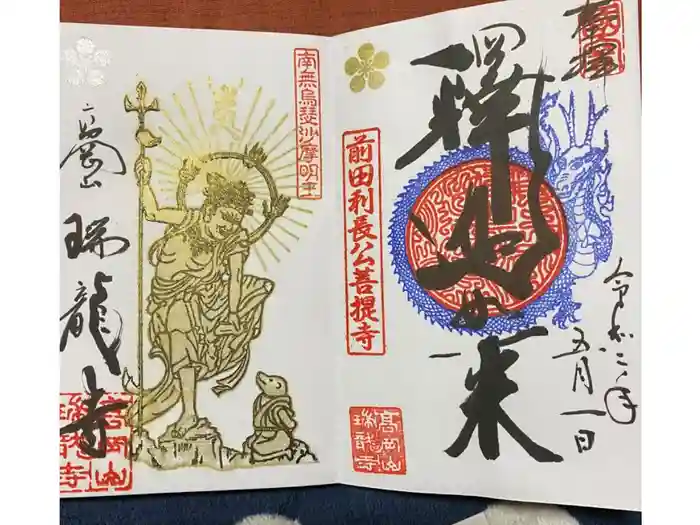 奉拝
釋迦如来
令和二年
五月一日
前田利長公菩提寺
高岡山
瑞龍寺
南無烏瑟沙摩明王
高岡山
瑞龍寺
高岡山
瑞龍寺